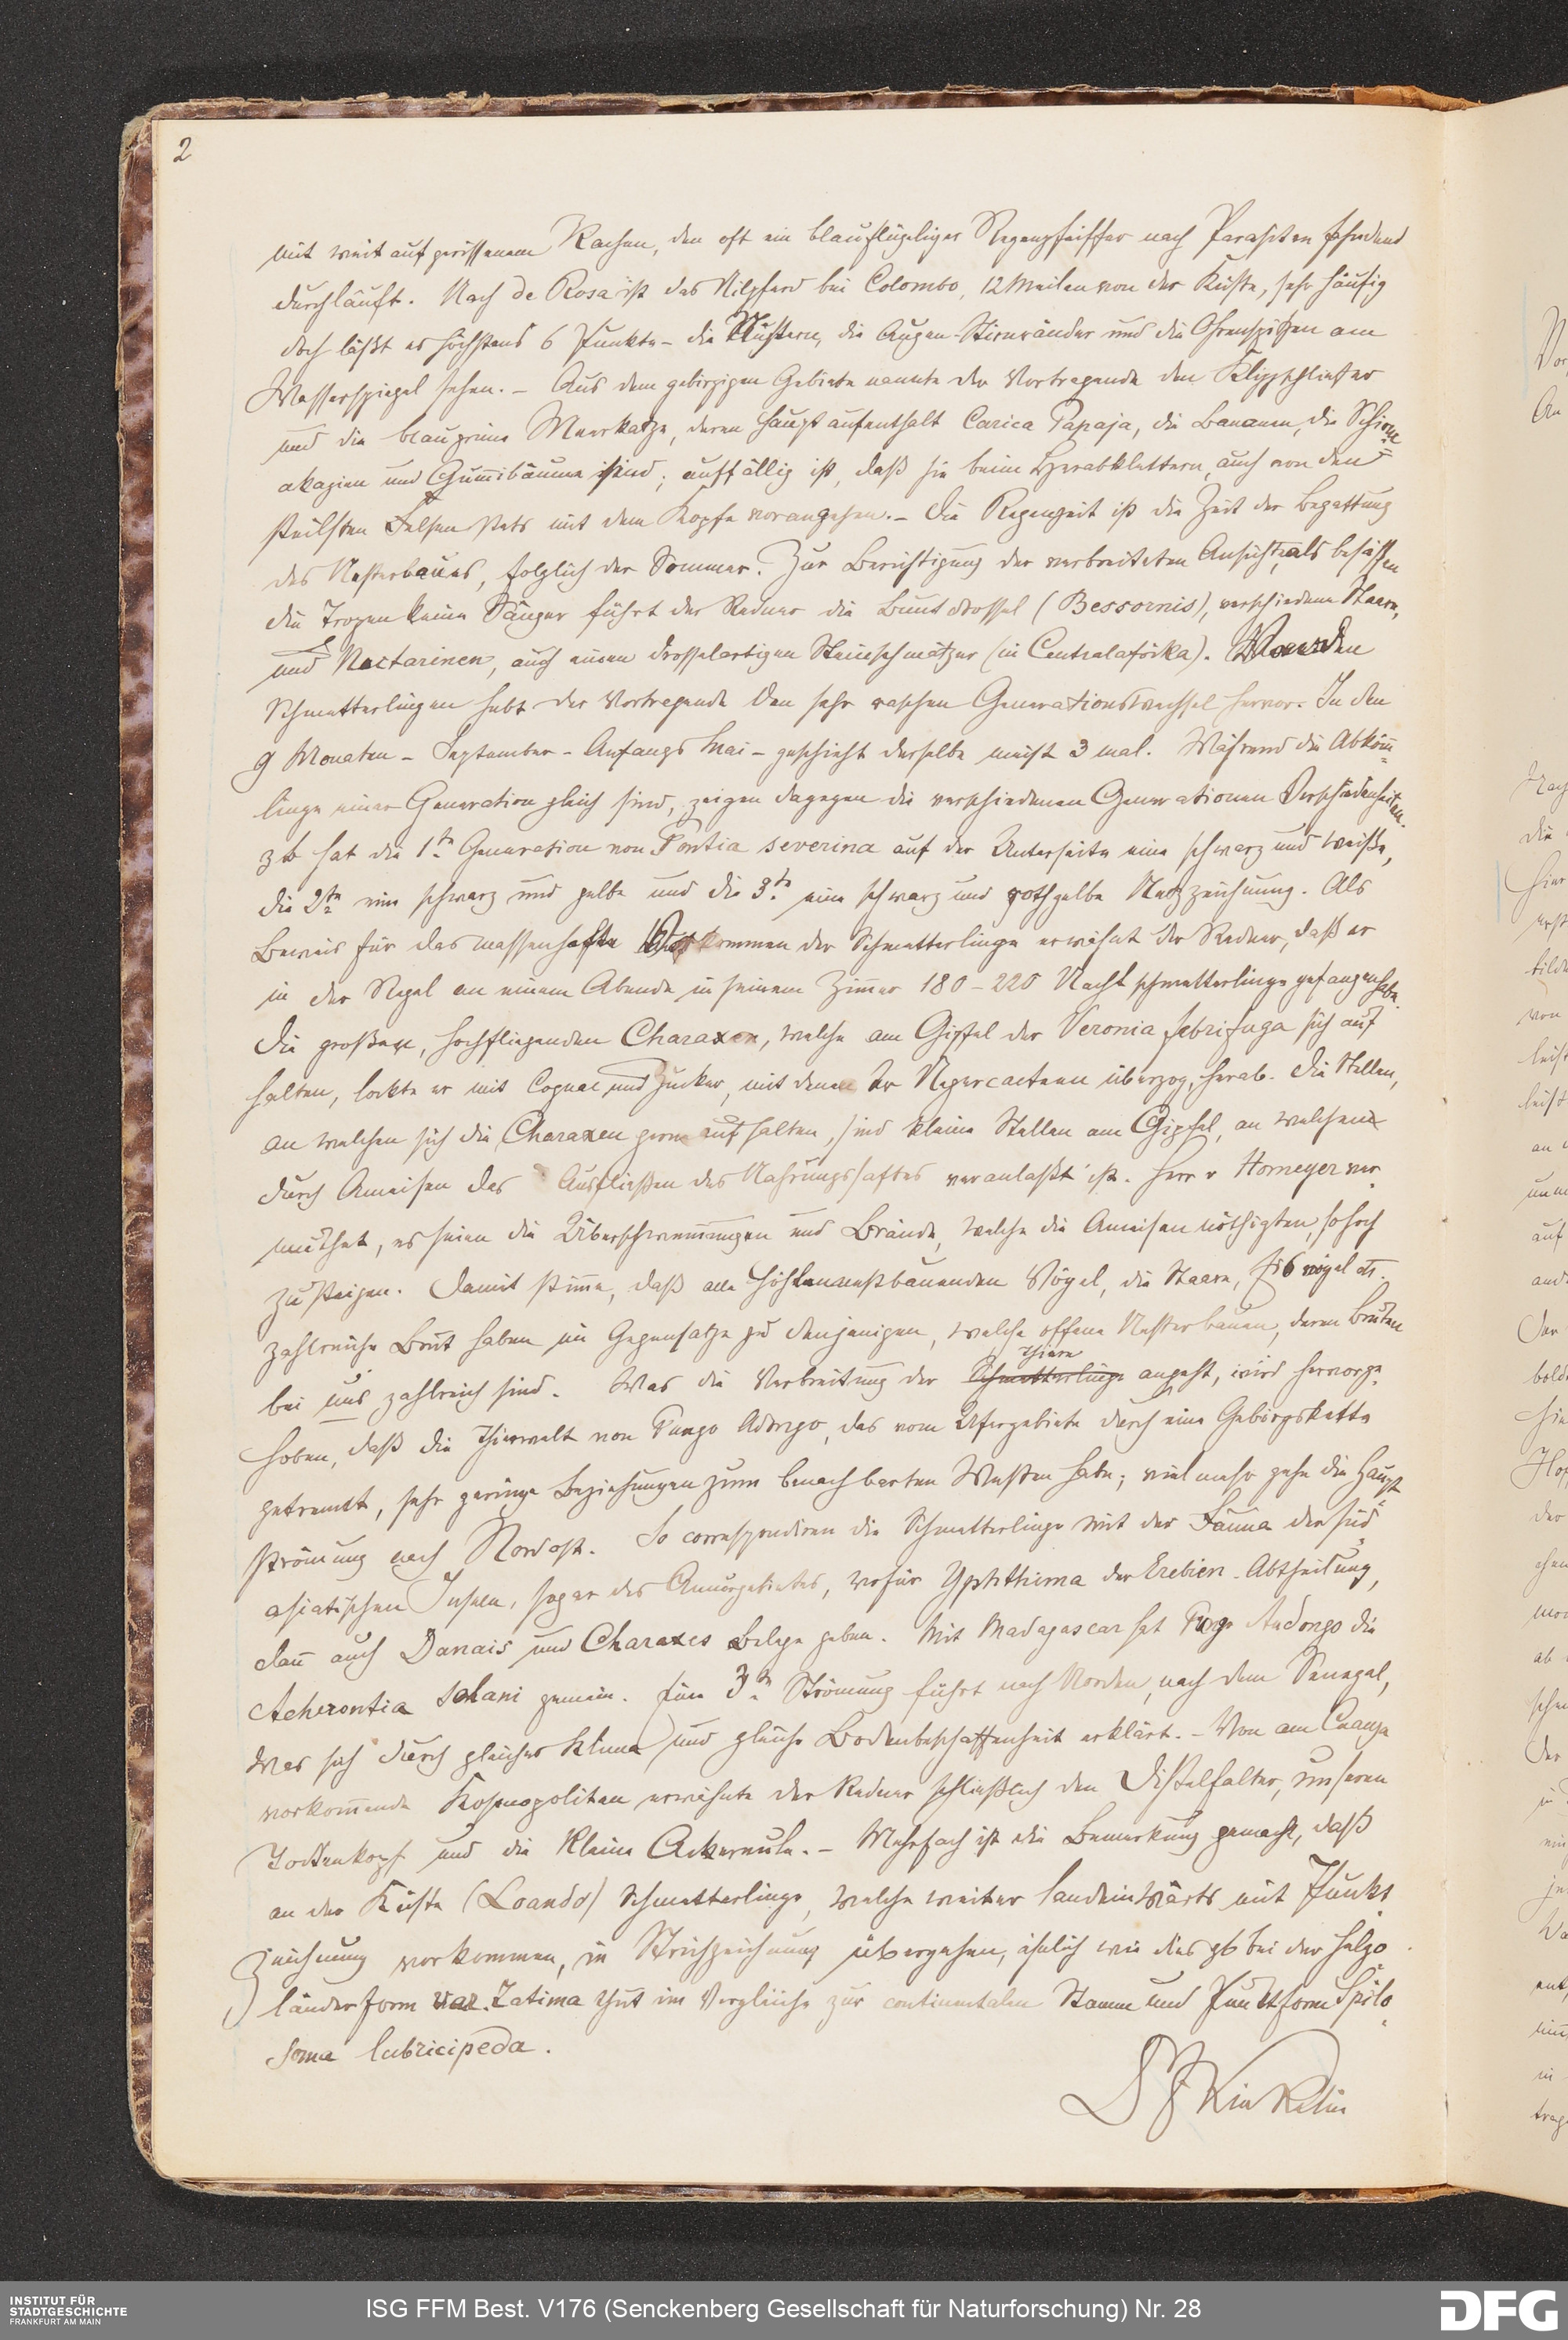 2
mit weit aufgerissenem Rachen, den oft ein blauflügeliger Regenpfeiffer nach Parasiten suchend
durchläuft. Nach de Rosa ist das Nilpferd bei Colombo, 12 Meilen von der Küste, sehr häufig
doch läßt es höchstens 6 Punkte - die Nüstern, die Augen-Stirnränder und die Ohrenspitzen am
Wasserspiegel sehen. - Aus dem gebirgigen Gebiete nannte der Vortragende den Klippschliefer
und die blaugrüne Meerkatze, deren Hauptaufenthalt Carica Papaja, die Bananen, die Schirm=
akazien und Gum̅ibäume sind; auffällig ist, daß sie beim Herabklettern, auch von den
steilsten Felsen stets mit dem Kopfe vorangehen. - Die Regenzeit ist die Zeit der Begattung
des Nesterbaues, folglich der Sommer. Zur Berichtigung der verbreiteten Ansicht, als besässen
die Tropen keine Sänger führt der Redner die Buntdrossel (Bessornis), verschiedene Staare,
und Nectarinen, auch einen drosselartigen Steinschmätzer (in Centralafrika). Von den
Schmetterlingen hebt der Vortragende den sehr raschen Generationswechsel hervor. In den
9 Monaten - September - Anfangs Mai - geschieht derselbe meist 3 mal. Während die Abköm̅=
linge einer Generation gleich sind, zeigen dagegen die verschiedenen Generationen Verschiedenheiten.
zb hat die 1te Generation von Pontia severina auf der Unterseite eine schwarz und weiße,
die 2te eine schwarz und gelbe und die 3te eine schwarz und rothgelbe Netzzeichnung. Als
Beweis für das massenhafte Vorkommen der Schmetterlinge erwähnt der Redner, daß er
in der Regel an einem Abende in seinem Zim̅er 180-220 Nachtschmetterlinge gefangen habe.
Die großen, hochfliegenden Charaxen, welche am Gipfel der Veronia febrifuga sich auf
halten, lockte er mit Cognac und Zucker, mit denen er Negercacteen überzog, herab. Die Stellen,
an welchen sich die Charaxen gerne aufhalten, sind kleine Stellen am Gipfel, an welchen
durch Ameisen das Ausfließen des Nahrungssaftes veranlaßt ist. Herr v Homeyer ver=
muthet, es seien die Überschwem̅ungen und Brände, welche die Ameisen nöthigten, so hoch
zu steigen. Damit stim̅e, daß alle höhlennestbauenden Vögel, die Staare, Eisvögel etc.
zahlreiche Brut haben im Gegensatze zu denjenigen, welche offene Nester bauen, deren Bruten
bei uns zahlreich sind. Was die Verbreitung der Schmetterlinge Thiere angeht, wird hervorge=
hoben, daß die Thierwelt von Pungo Adongo, das vom Ufergebiete durch eine Gebirgskette
getrennt, sehr geringe Beziehungen zum benachbarten Westen habe; vielmehr gehe die Haupt=
strömung nach Nordost. So correspondiren die Schmetterlinge mit der Fauna der süd=
asiatischen Inseln, sogar des Amurgebietes, wofür Yphthima der Erebien-Abtheilung,
dan̅ auch Danais und Charaxes Belege geben. Mit Madagascar hat Pungo Andongo die
Acherontia solani gemein. Eine 3te Strömung führt nach Norden, nach dem Senegal,
was sich durch gleiches Klima und gleiche Bodenbeschaffenheit erklärt. - Von am Cuanza
vorkom̅ende Kosmopoliten erwähnte der Redner schließlich den Distelfalter, unseren
Todtenkopf und die kleine Ackereule. - Mehrfach ist die Bemerkung gemacht, daß
an der Küste (Loando) Schmetterlinge, welche weiter landeinwärts mit Punkt=
zeichnung vorkommen, in Strichzeichnung übergehen, ähnlich wie dies zb bei der Helgo=
länderform var. Zatima thut im Vergleiche zur continentalen Stamm und Punktform Spilo=
soma lubricipeda.
Dr F Kinkelin
INSTITUT FÜR
STADTGESCHICHTE
FRANKFURT AM MAIN
ISG FFM Best. V176 (Senckenberg Gesellschaft für Naturforschung) Nr. 28
DFG